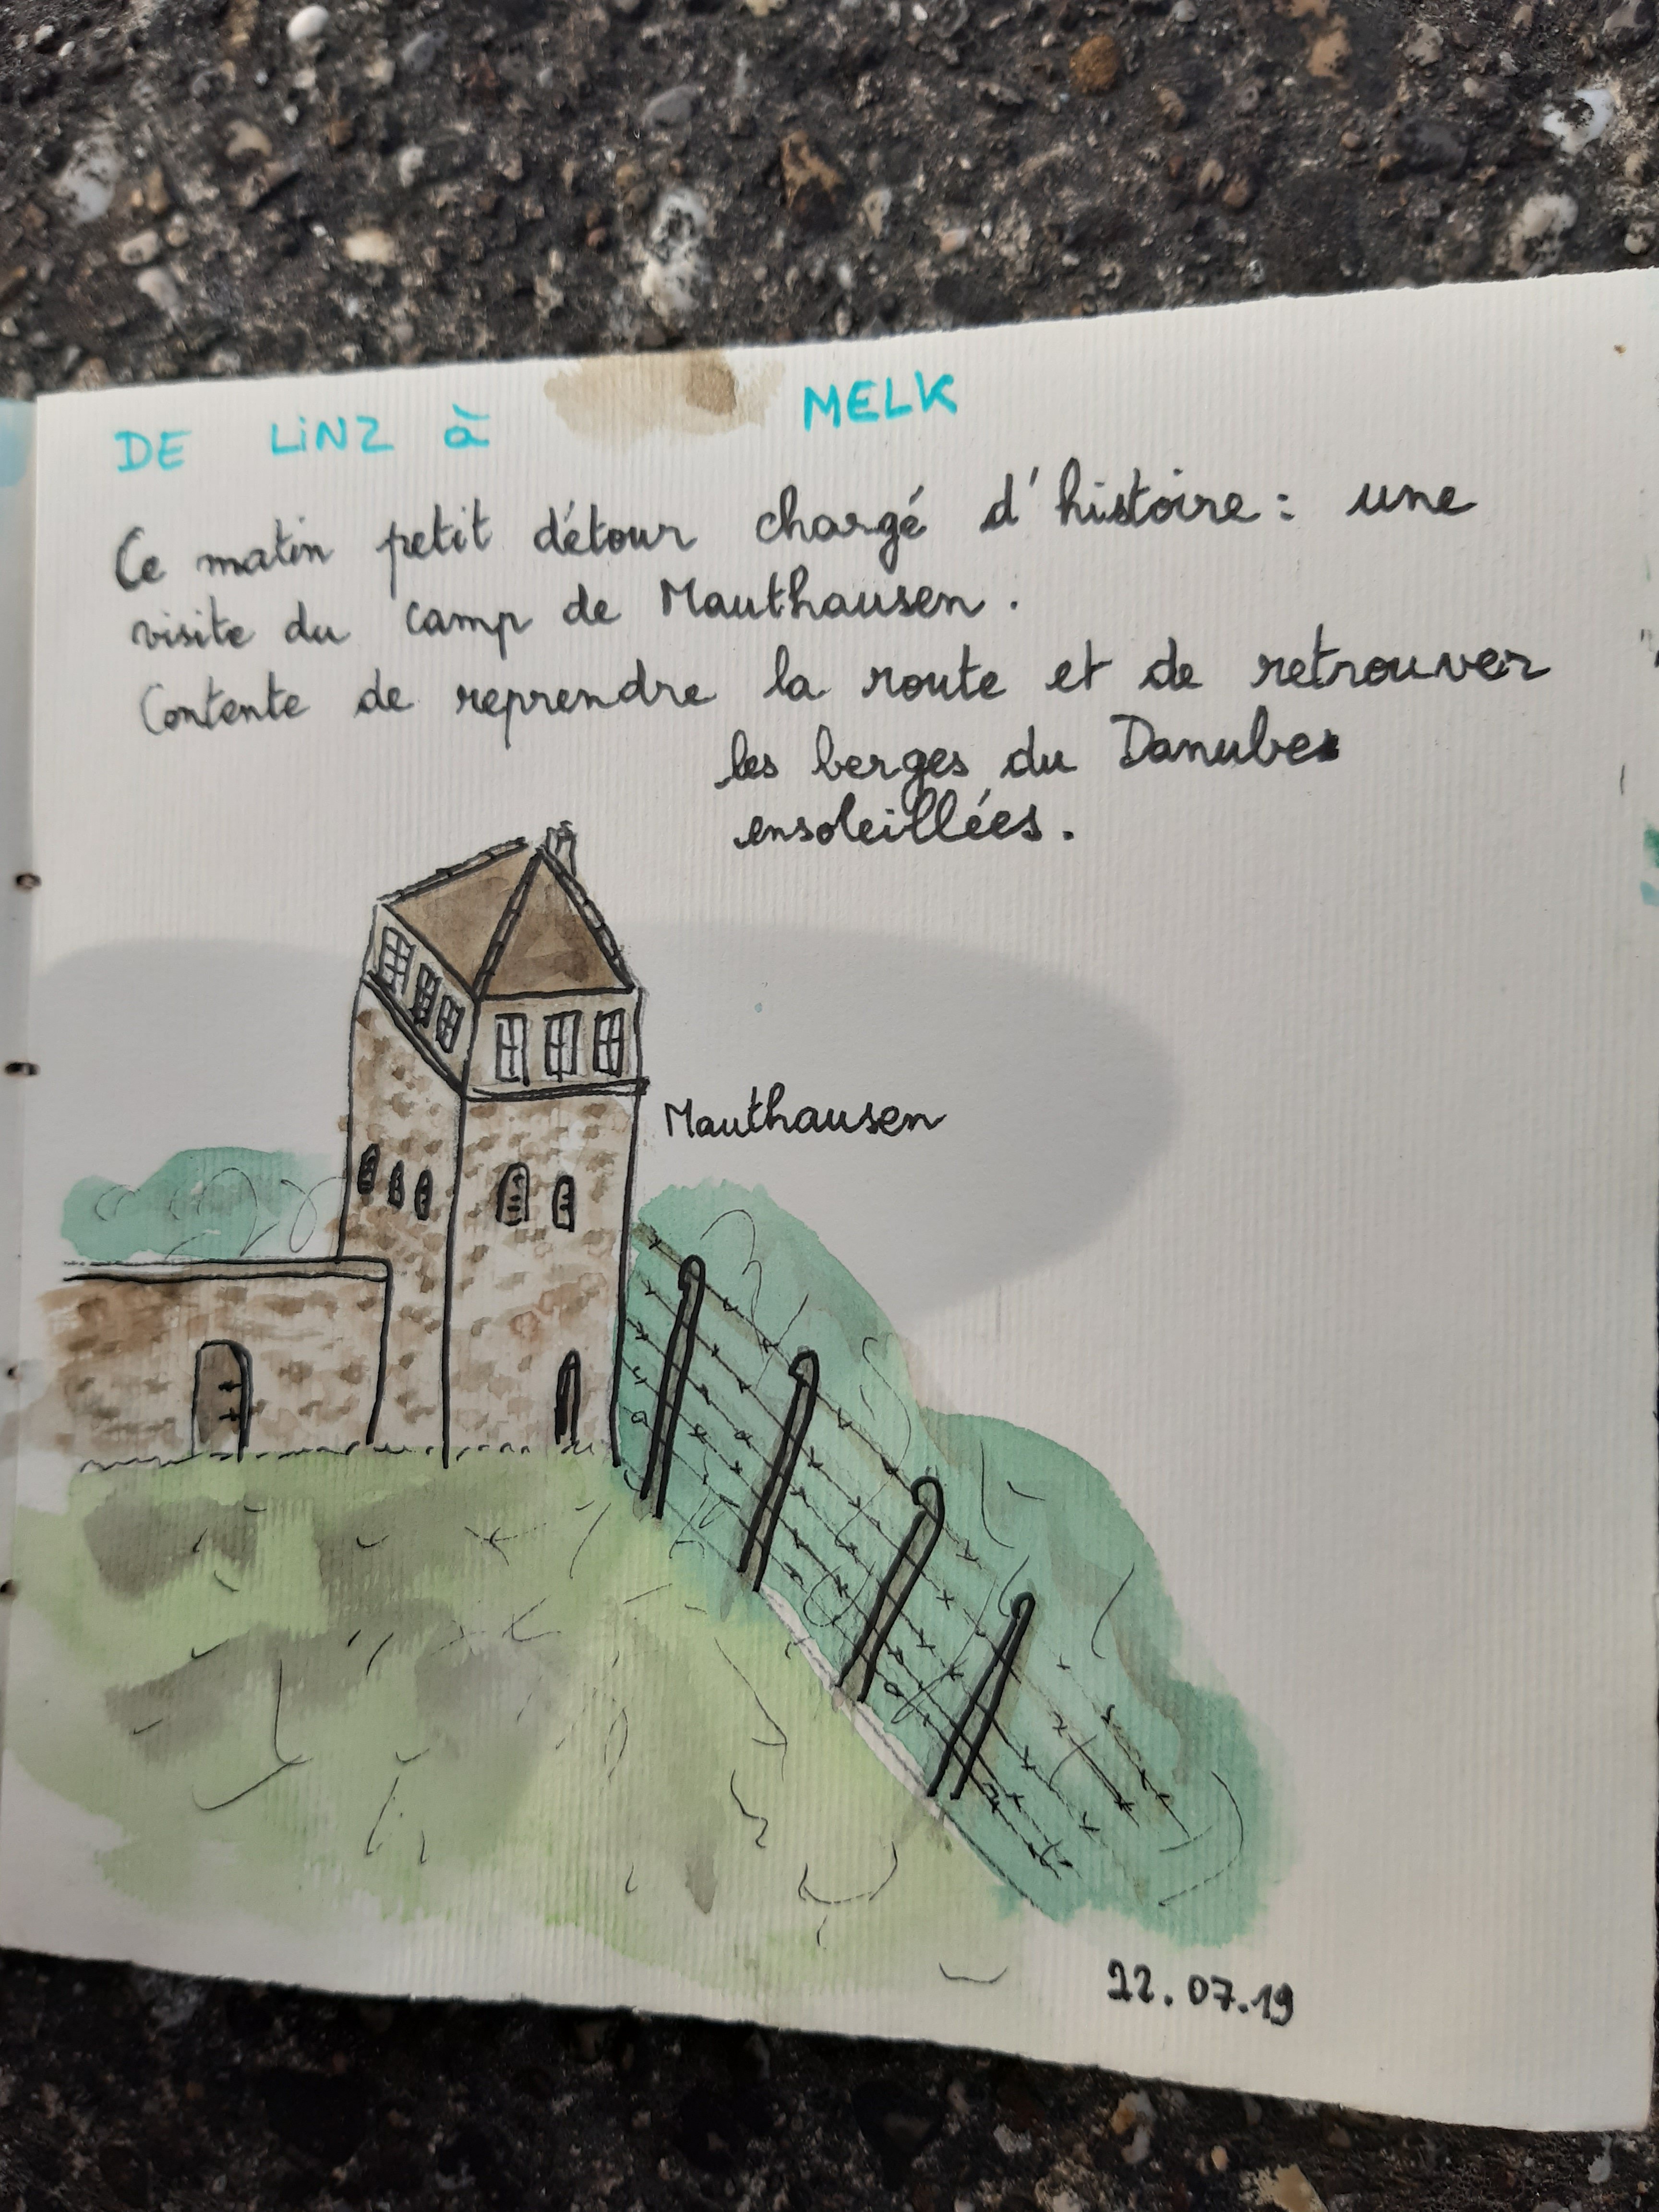 DE LiNZ à MELK
Ce matin petit détour chargé d'histoire : une
visite du camp de Mauthausen.
Contente de reprendre la route et de retrouver
les berges du Danube
ensoleillées.
Mauthausen
22.07.19